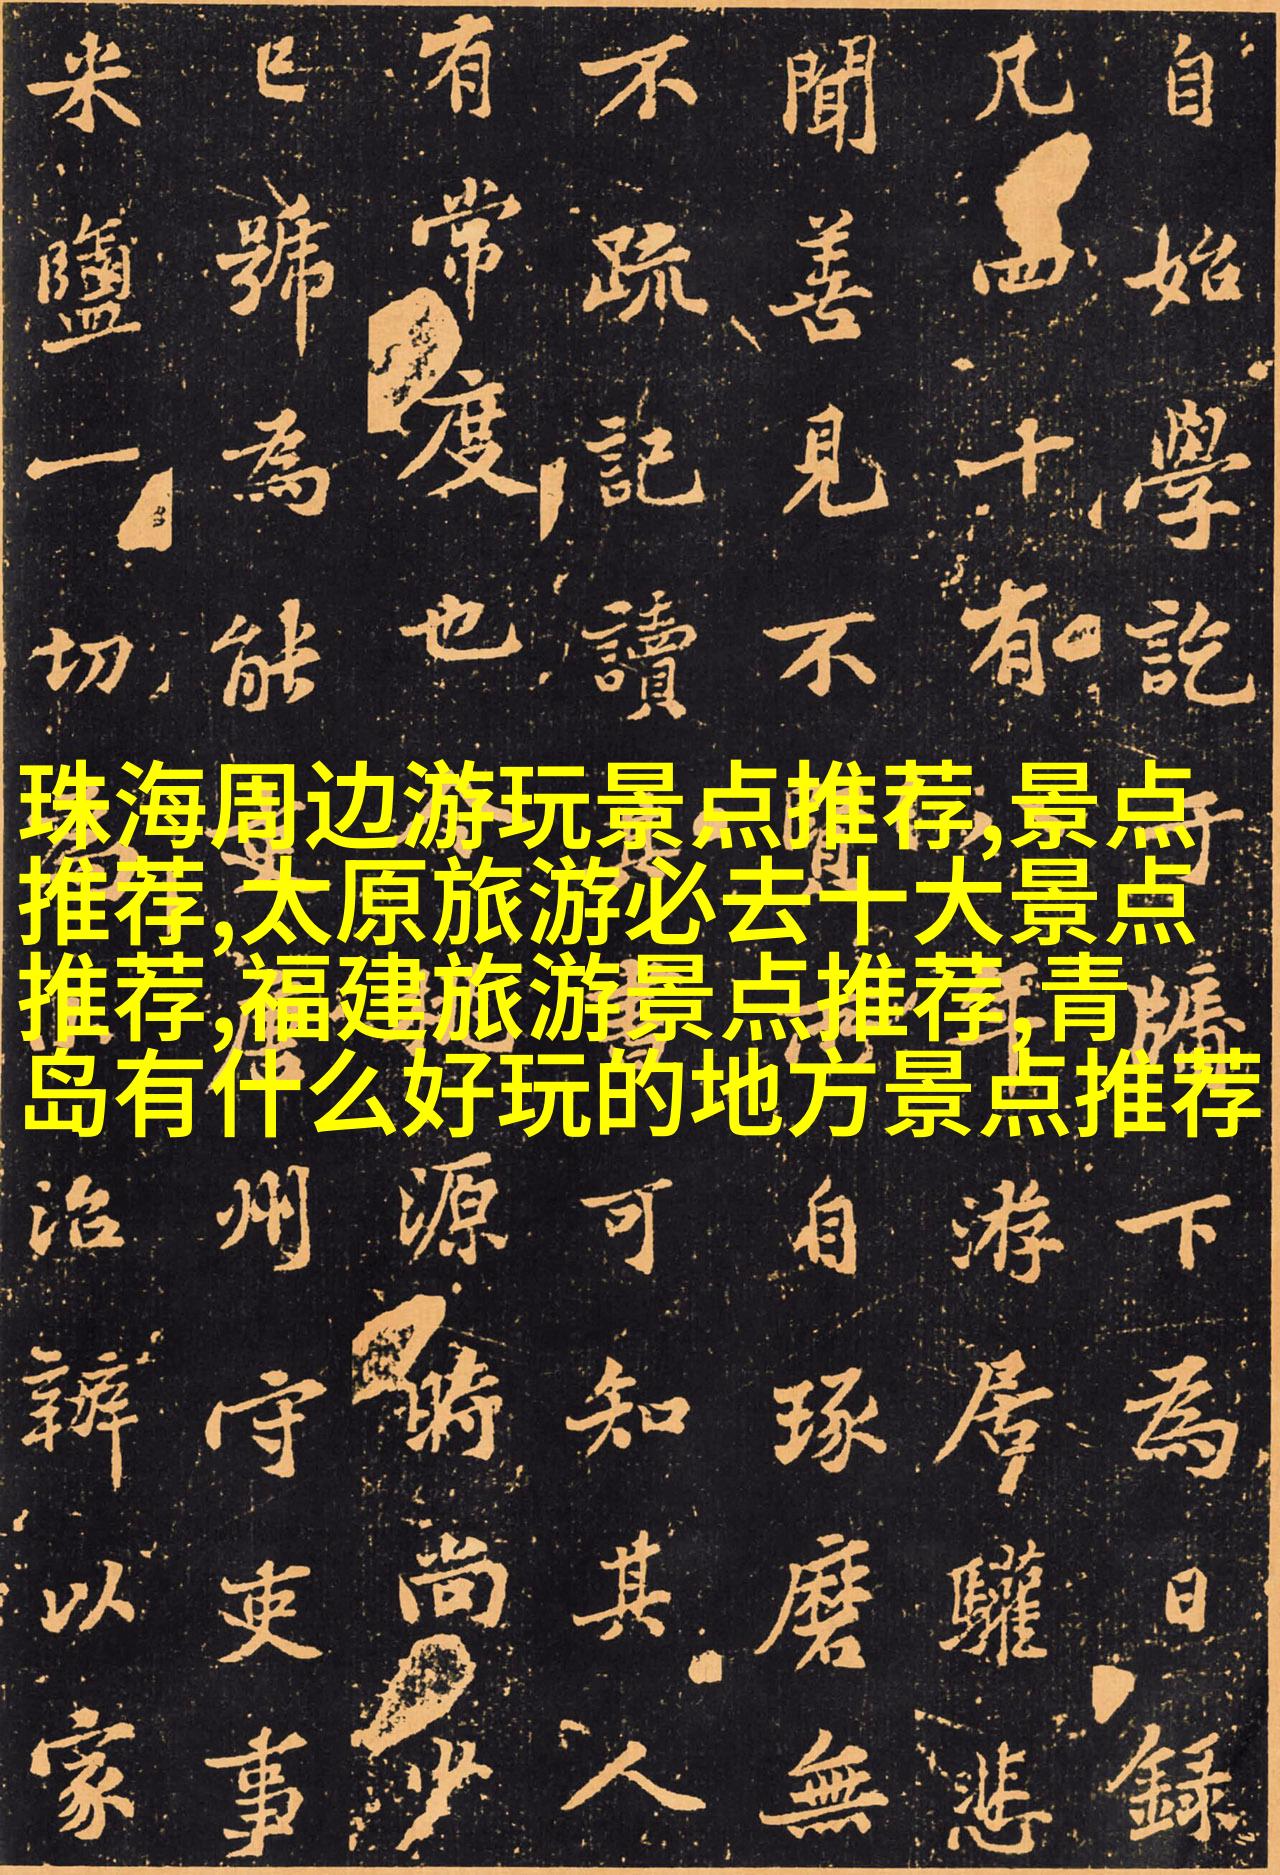 自始學訖于牖下為日錄
凡四十有年游居驩悲
聞善見不賢自琢磨無
不疏記讀其書可知其人
有常度也源時尚少
已號為能居州守吏事
米鹽一切治辨以家
珠海周边游玩景点推荐,景点
推荐,太原旅游必去十大景点
推荐,福建旅游景点推荐,青
岛有什么好玩的地方景点推荐